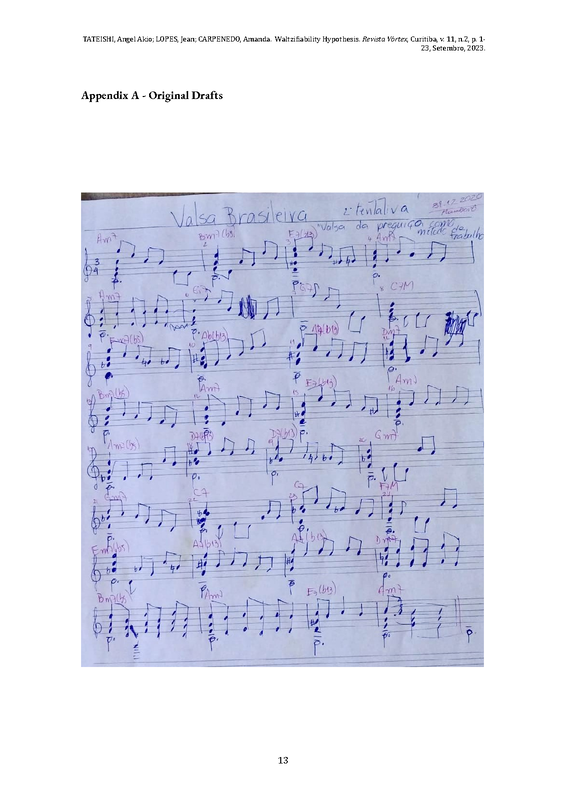 TATEISHI, Angel Akio; LOPES, Jean; CARPENEDO, Amanda. Waltzifiability Hypothesis. Revista Vórtex, Curitiba, v. 11, n.2, p. 1-
23, Setembro, 2023.
Appendix A - Original Drafts
Valsa Brasileira 2ª tentativa 31.12.2020
"Valsa da preguiça como
método de trabalho
Am7 Bm7(b5) E7(b13) Am7
Am7 G7 G7 C7M
Em7(b5) A7(b13) A7(b13) Dm7
Bm7(b5) Am7 E7(b13) Am7
Am7(b5) D7(b13) D7(b13) Gm7
Gm7 C7 C7 F7M
Em7(b5) A7(b13) A7(b13) Dm7
Bm7(b5) Am7 E7(b13) Am7
13